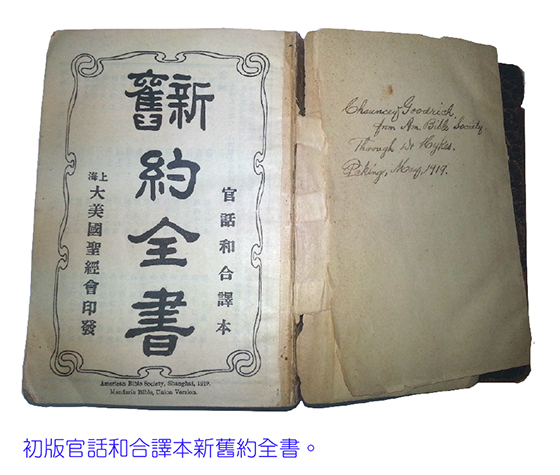 新舊約全書
官話和合譯本
上海大美國聖經會印發
American Bible Society, Shanghai, 1919.
Mandarin Bible, Union Version.
Chauncey Goodrich.
from Am. Bible Society
Through Dr Hykes.
Peking, May, 1919.
初版官話和合譯本新舊約全書。